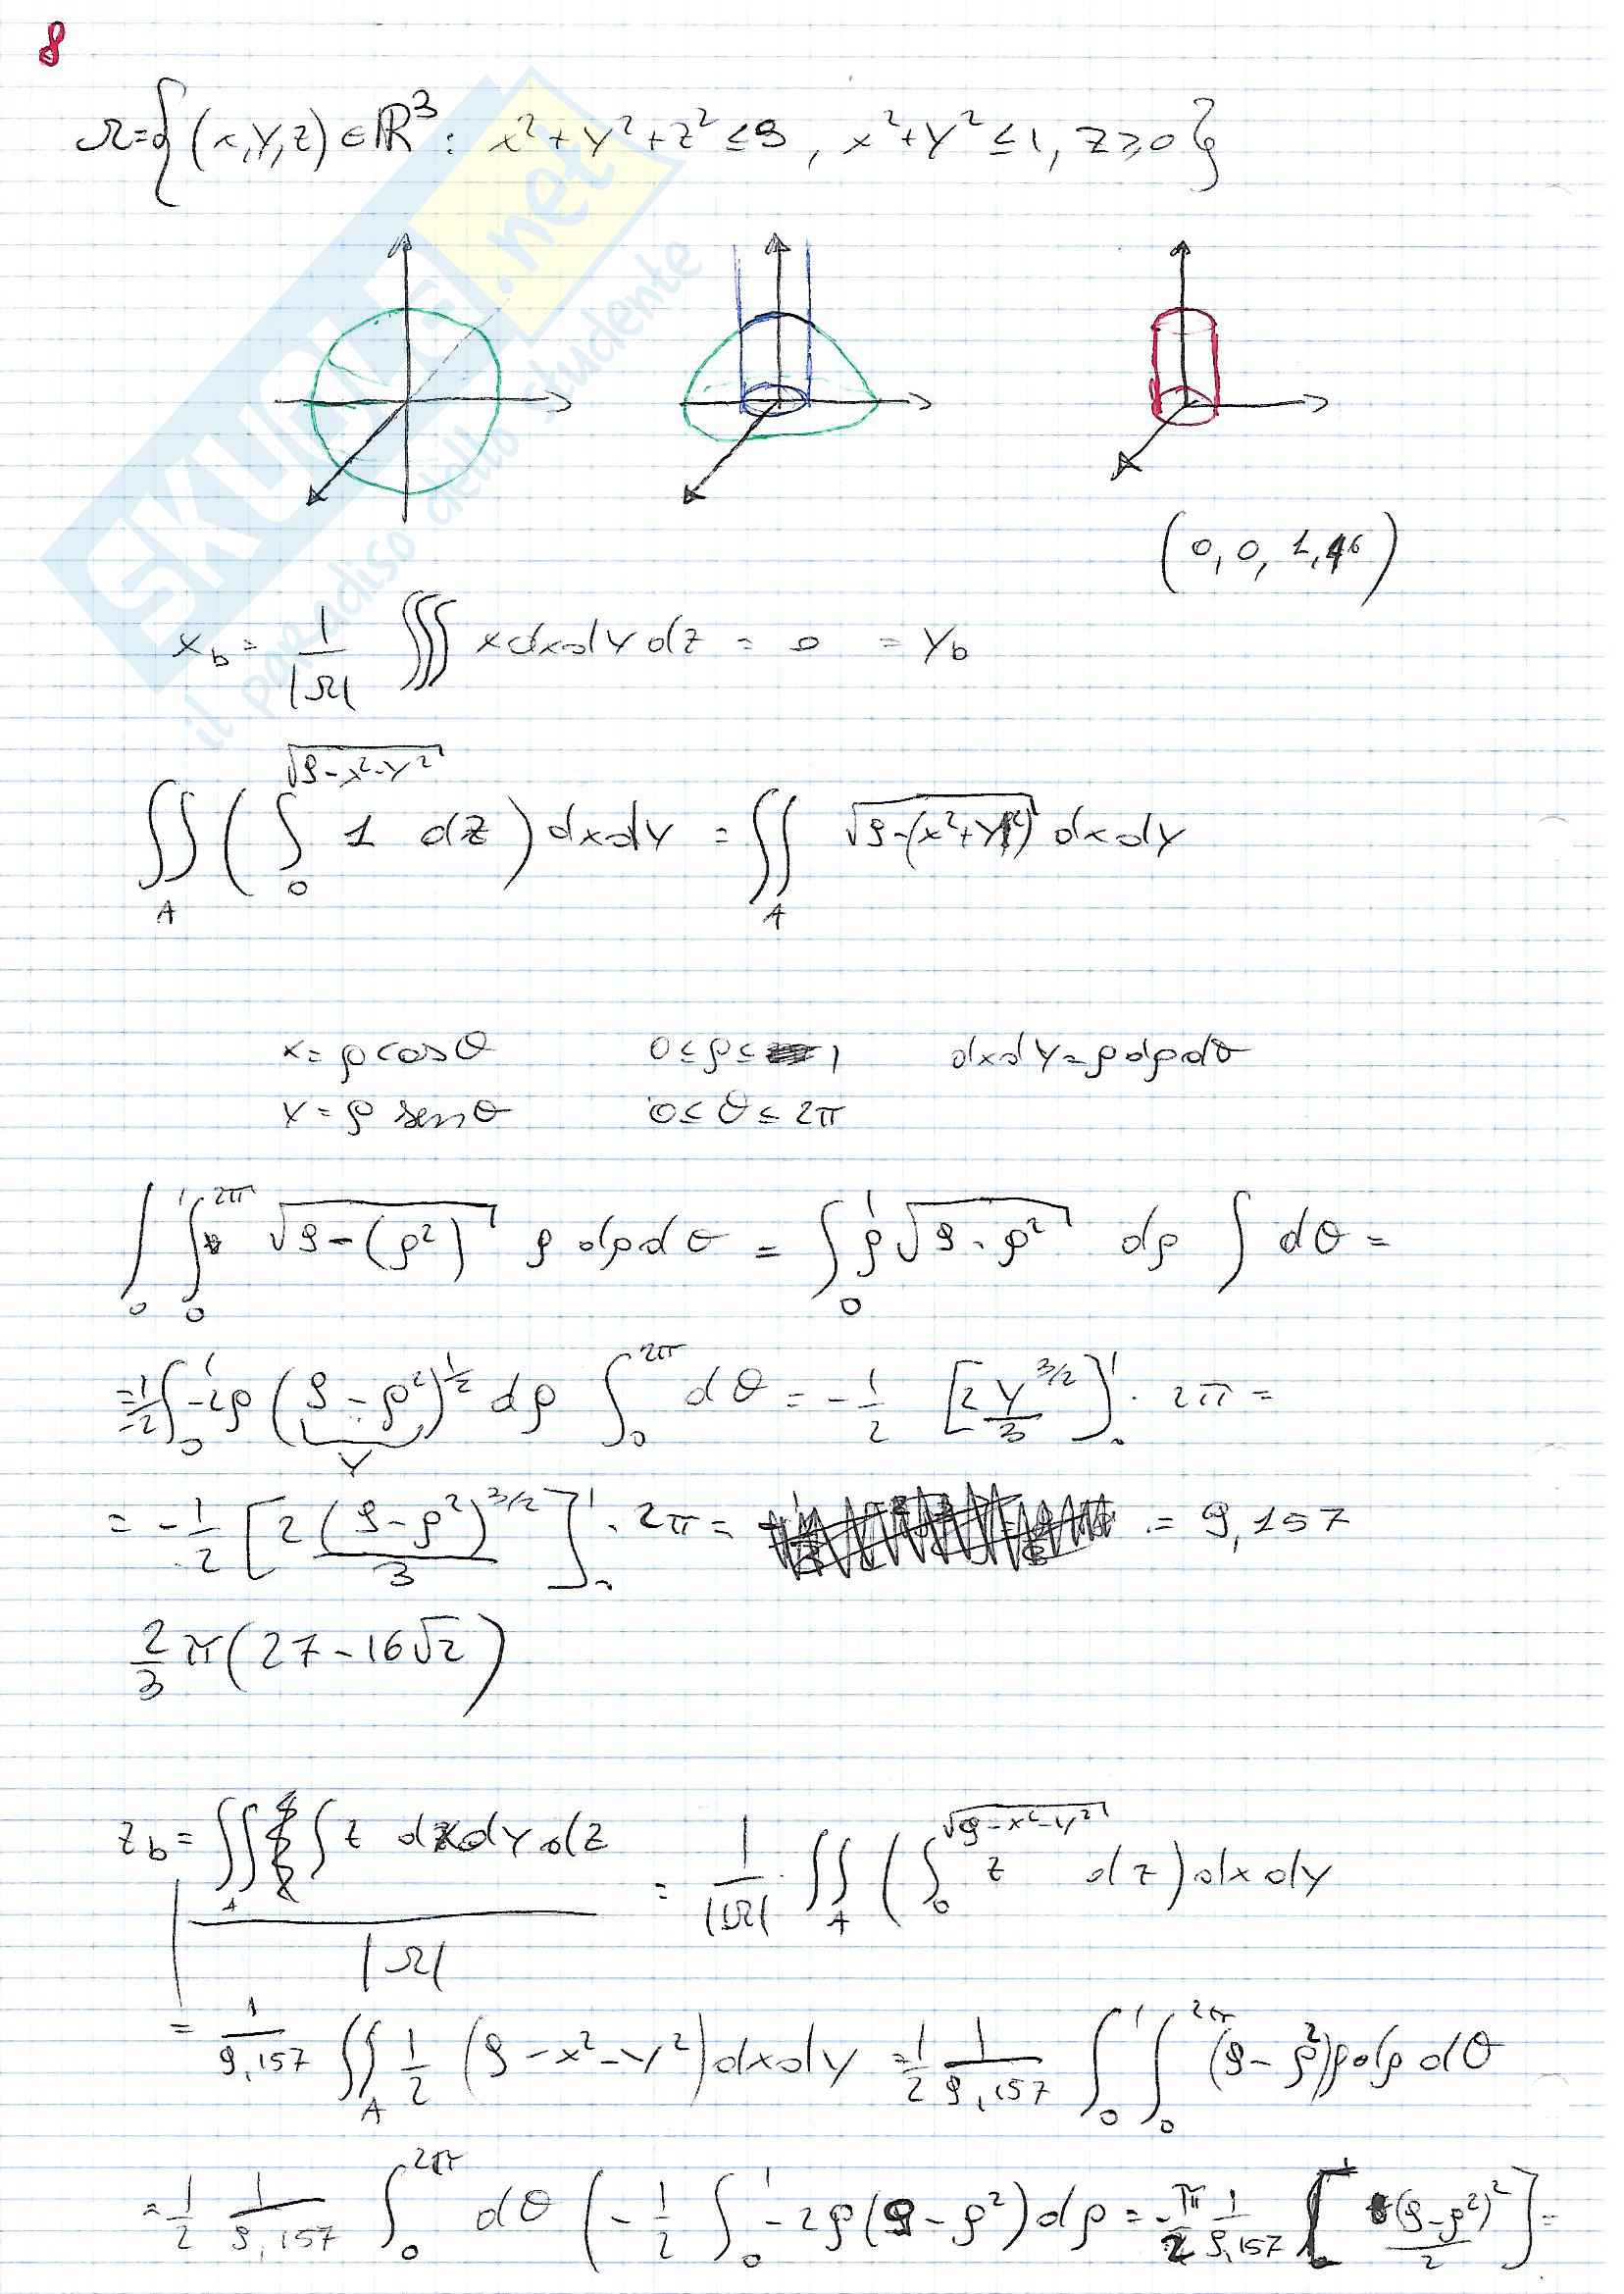 8
Ω = {(x, y, z) ∈ ℝ³ : x² + y² + z² ≤ 9 , x² + y² ≤ 1, z ≥ 0}
SKUOLA.net
il paradiso dello studente
(0, 0, 1,46)
x_b = 1/|Ω| ∭ x dx dy dz = 0 = y_b
∬_A ( ∫_0^{√(9-x²-y²)} 1 dz ) dx dy = ∬_A √(9-(x²+y²)) dx dy
x = ρ cos θ 0 ≤ ρ ≤ 1 dx dy = ρ dρ dθ
y = ρ sen θ 0 ≤ θ ≤ 2π
∫_0^1 ∫_0^{2π} √(9-(ρ²)) ρ dρ dθ = ∫_0^1 ρ √(9-ρ²) dρ ∫ dθ =
= -1/2 ∫_0^1 -2ρ (9-ρ²)^{1/2} dρ ∫_0^{2π} dθ = -1/2 [2 y^{3/2}/3]_0^1 · 2π =
y
= -1/2 [2 (9-ρ²)^{3/2}/3]_0^1 · 2π = = 9,157
2/3 π (27 - 16√2)
z_b = ∬_A ∫ z dx dy dz / |Ω| = 1/|Ω| · ∬_A ( ∫_0^{√(9-x²-y²)} z dz ) dx dy
= 1/9,157 ∬_A 1/2 (9-x²-y²) dx dy = 1/2 1/9,157 ∫_0^1 ∫_0^{2π} (9-ρ²) ρ dρ dθ
= 1/2 1/9,157 ∫_0^{2π} dθ ( -1/2 ∫_0^1 -2ρ (9-ρ²) dρ = -π/2 1/9,157 [ (9-ρ²)²/2 ]_0^1 =